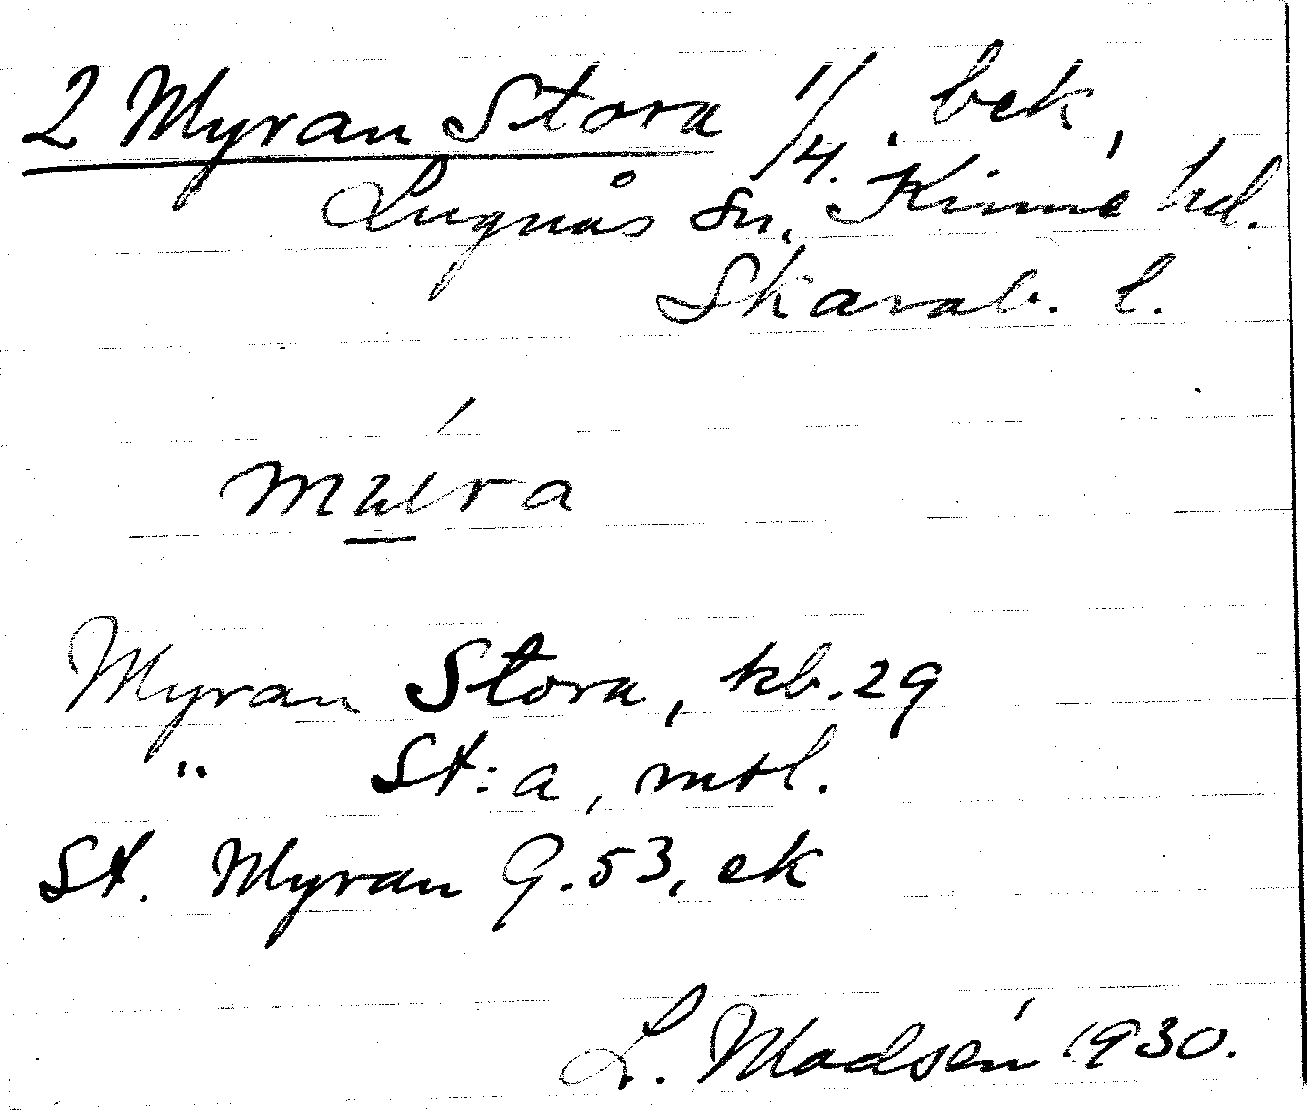 2 Myran Stora 1/4. bek,
Lugnås sn, Kinne hd.
Skarab. l.
Myran Stora, kb. 29
" St:a, mtl.
St. Myran 9.53, ek
L. Madsén 1930.